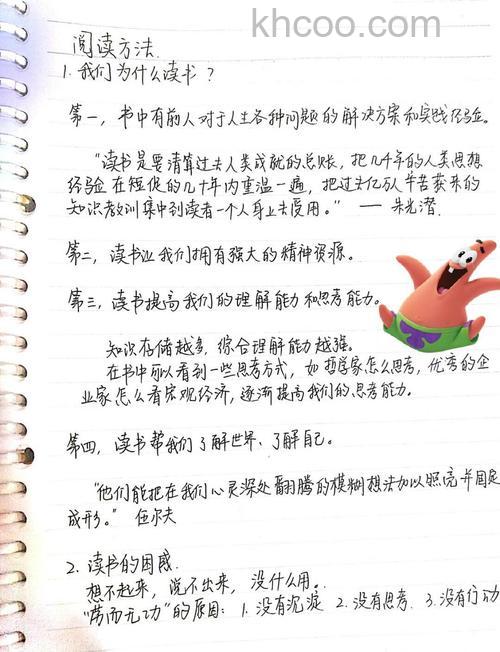 khcoo.com
阅读方法.
1.我们为什么读书？
第一，书中有前人对于人生各种问题的解决方案和实践经验。
“读书是要清算过去人类成就的总账，把几千年的人类思想
经验在短促的几十年内重温一遍，把过去亿万人辛苦获来的
知识教训集中到读者一个人身上去受用。” —— 朱光潜
第二，读书让我们拥有强大的精神资源。
第三，读书提高我们的理解能力和思考能力。
知识存储越多，综合理解能力越强。
在书中可以看到一些思考方式，如哲学家怎么思考，优秀的企
业家怎么看宏观经济，逐渐提高我们的思考能力。
第四，读书帮我们了解世界、了解自己。
“他们能把在我们心灵深处翻腾的模糊想法加以照亮并固定
成形。” 伍尔夫
2.读书的困惑.
想不起来，说不出来，没什么用。
“劳而无功”的原因：1.没有沉淀 2.没有思考. 3.没有行动